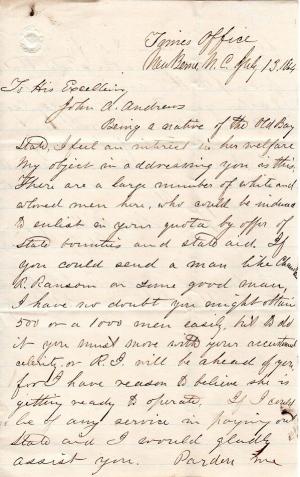 Times Office
New Berne, N.C. July 13, 1864
To His Excellency
John A. Andrews
Being a native of the Old Bay
State, I feel an interest in her welfare
My object in addressing you is this,
There are a large number of white and
colored men here, who could be induced
to enlist in your quota by offer of
State bounties and state aid. If
you could send a man like
R. Ransom or some good man,
I have no doubt you might obtain
500 or a 1000 men easily, but to do
it you must move with your accustomed
celerity, or R.I. will be ahead of you,
for I have reason to believe she is
getting ready to operate. If I could
be of any service in
State aid I would gladly
assist you. Pardon me